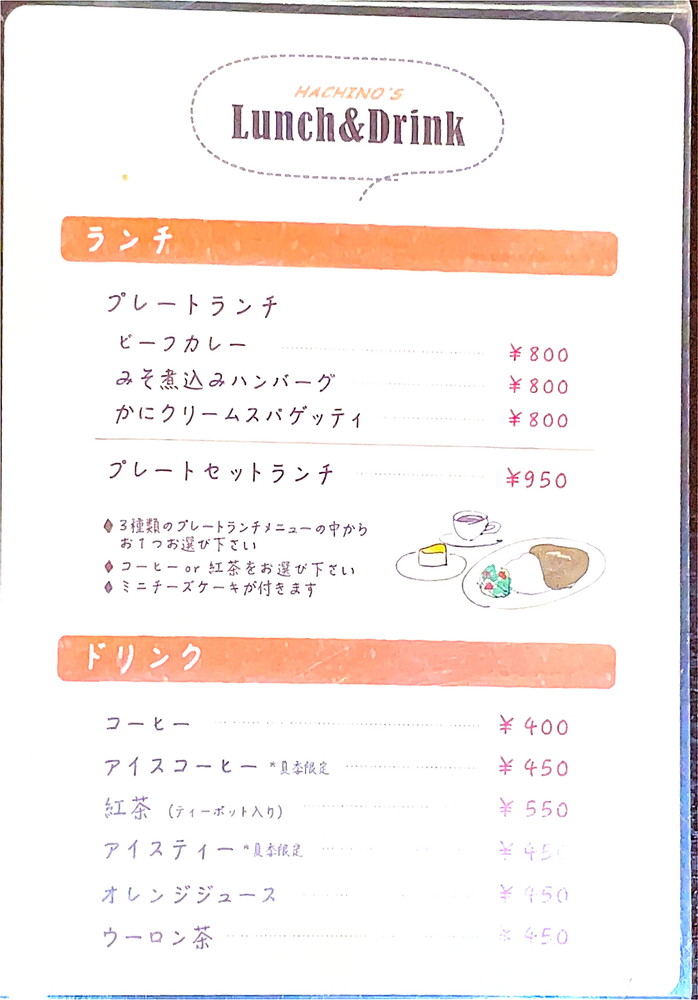 HACHINO'S
Lunch&Drink
ランチ
プレートランチ
ビーフカレー ¥800
みそ煮込みハンバーグ ¥800
かにクリームスパゲッティ ¥800
プレートセットランチ ¥950
♦3種類のプレートランチメニューの中から
お1つお選び下さい
♦コーヒー or 紅茶をお選び下さい
♦ミニチーズケーキが付きます
ドリンク
コーヒー ¥400
アイスコーヒー *夏季限定 ¥450
紅茶 (ティーポット入り) ¥550
アイスティー *夏季限定 ¥450
オレンジジュース ¥450
ウーロン茶 ¥450